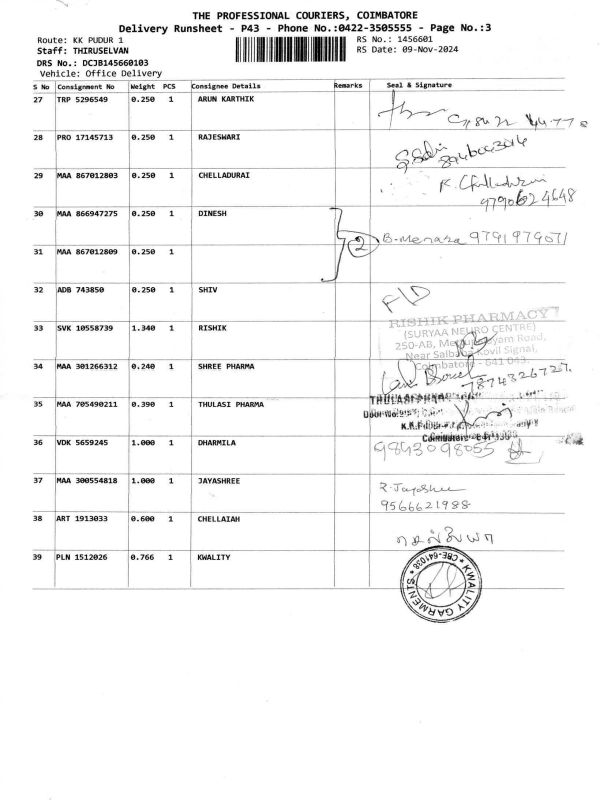 THE PROFESSIONAL COURIERS, COIMBATORE
Delivery Runsheet - P43 - Phone No.:0422-3505555 - Page No.:3
Route: KK PUDUR 1
RS No.: 1456601
Staff: THIRUSELVAN
RS Date: 09-Nov-2024
DRS No.: DCJB145660103
Vehicle: Office Delivery
S No Consignment No Weight PCS Consignee Details Remarks Seal & Signature
27 TRP 5296549 0.250 1 ARUN KARTHIK
28 PRO 17145713 0.250 1 RAJESWARI
29 MAA 867012803 0.250 1 CHELLADURAI
K. Chelladurai
9790624648
30 MAA 866947275 0.250 1 DINESH
2
B-Menaka 9791979071
31 MAA 867012809 0.250 1
32 ADB 743850 0.250 1 SHIV
F/D
33 SVK 10558739 1.340 1 RISHIK
RISHIK PHARMACY
(SURYAA NEURO CENTRE)
250-AB, Road,
Near Saibaba Kovil Signal,
Coimbatore - 641 043.
34 MAA 301266312 0.240 1 SHREE PHARMA
7874326727
35 MAA 705490211 0.390 1 THULASI PHARMA
THULASI PHARMA
Door No.
Coimbatore
36 VDK 5659245 1.000 1 DHARMILA
9843098055
37 MAA 300554818 1.000 1 JAYASHREE
R. Jayashree
9566621988
38 ART 1913033 0.600 1 CHELLAIAH
39 PLN 1512026 0.766 1 KWALITY
KWALITY GARMENTS * CBE-641038 *